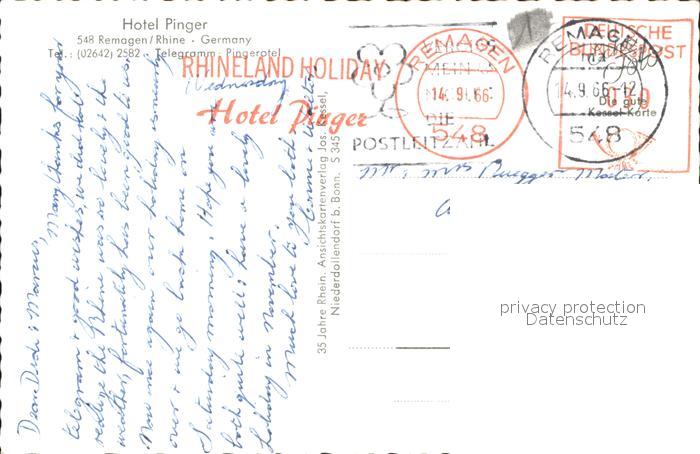 Hotel Pinger
548 Remagen/Rhine · Germany
Tel.: (02642) 2582 · Telegramm: Pingerotel
RHINELAND HOLIDAY
Hotel Pinger
Wednesday
Dear Dedi & Marcus,
Many thanks for your
telegram & good wishes, we did not
realize the Rhine was so lovely & the
weather, fortunately has been good too.
Now once again our holiday is nearly
over & we go back home on
Saturday morning. Hope you are
both quite well & have a lovely
holiday in November.
Much love to you both
35 Jahre Rhein. Ansichtskartenverlag Jos. Kessel,
Niederdollendorf b. Bonn. S 345
MEIN
DIE
POSTLEITZAHL
REMAGEN
14.9.66
548
REMAGEN
14.9.66-12
548
DEUTSCHE
BUNDESPOST
Foto
Die gute
Kessel-Karte
Mr & Mrs Ruegger-
privacy protection
Datenschutz